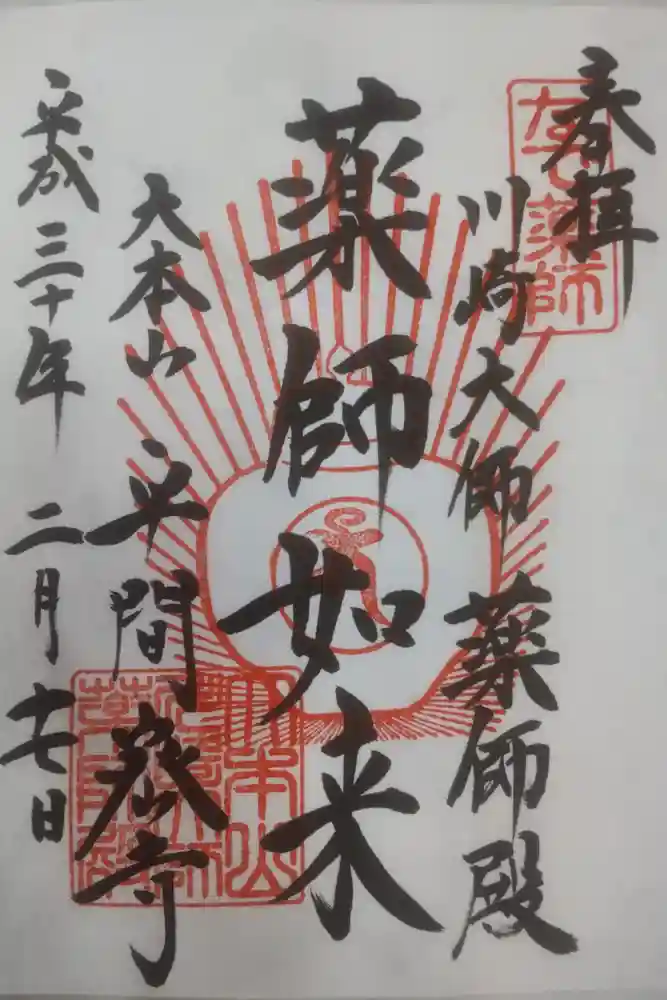 奉拝
川崎大師 薬師殿
薬師如来
大本山 平間寺
平成三十年 二月十七日